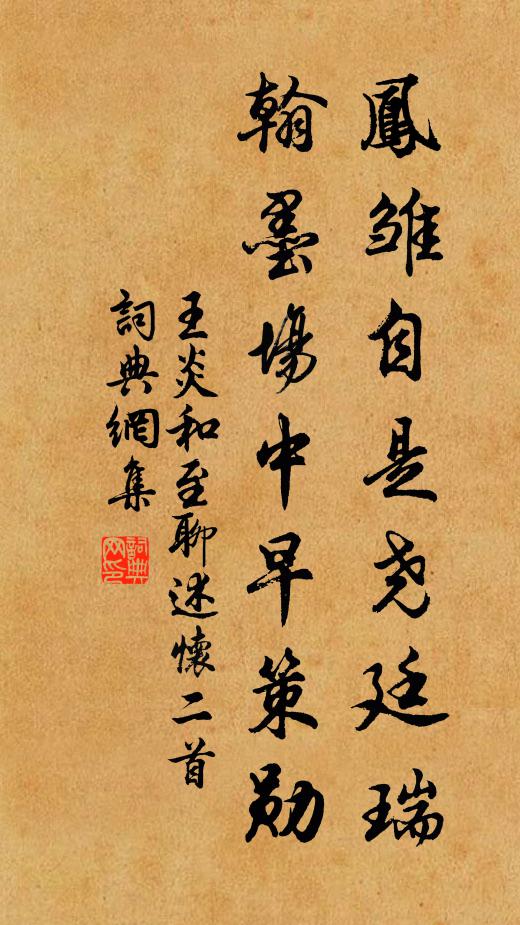 鳳雛自是尧廷瑞
翰墨場中早策勋
王炎和至聊述懷二首
詞典網集
詞典网印